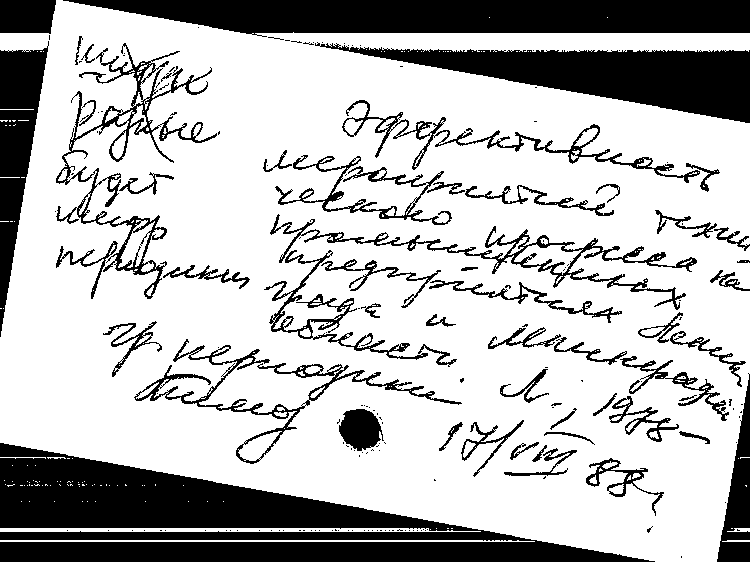 шифр
разные
будет
шифр
периодики
Эффективность
мероприятий техни
ческого прогресса на
промышленных
предприятиях Ленин
града и Ленинградской
области Л., 1978-
гр. периодики
17/VIII 88г.